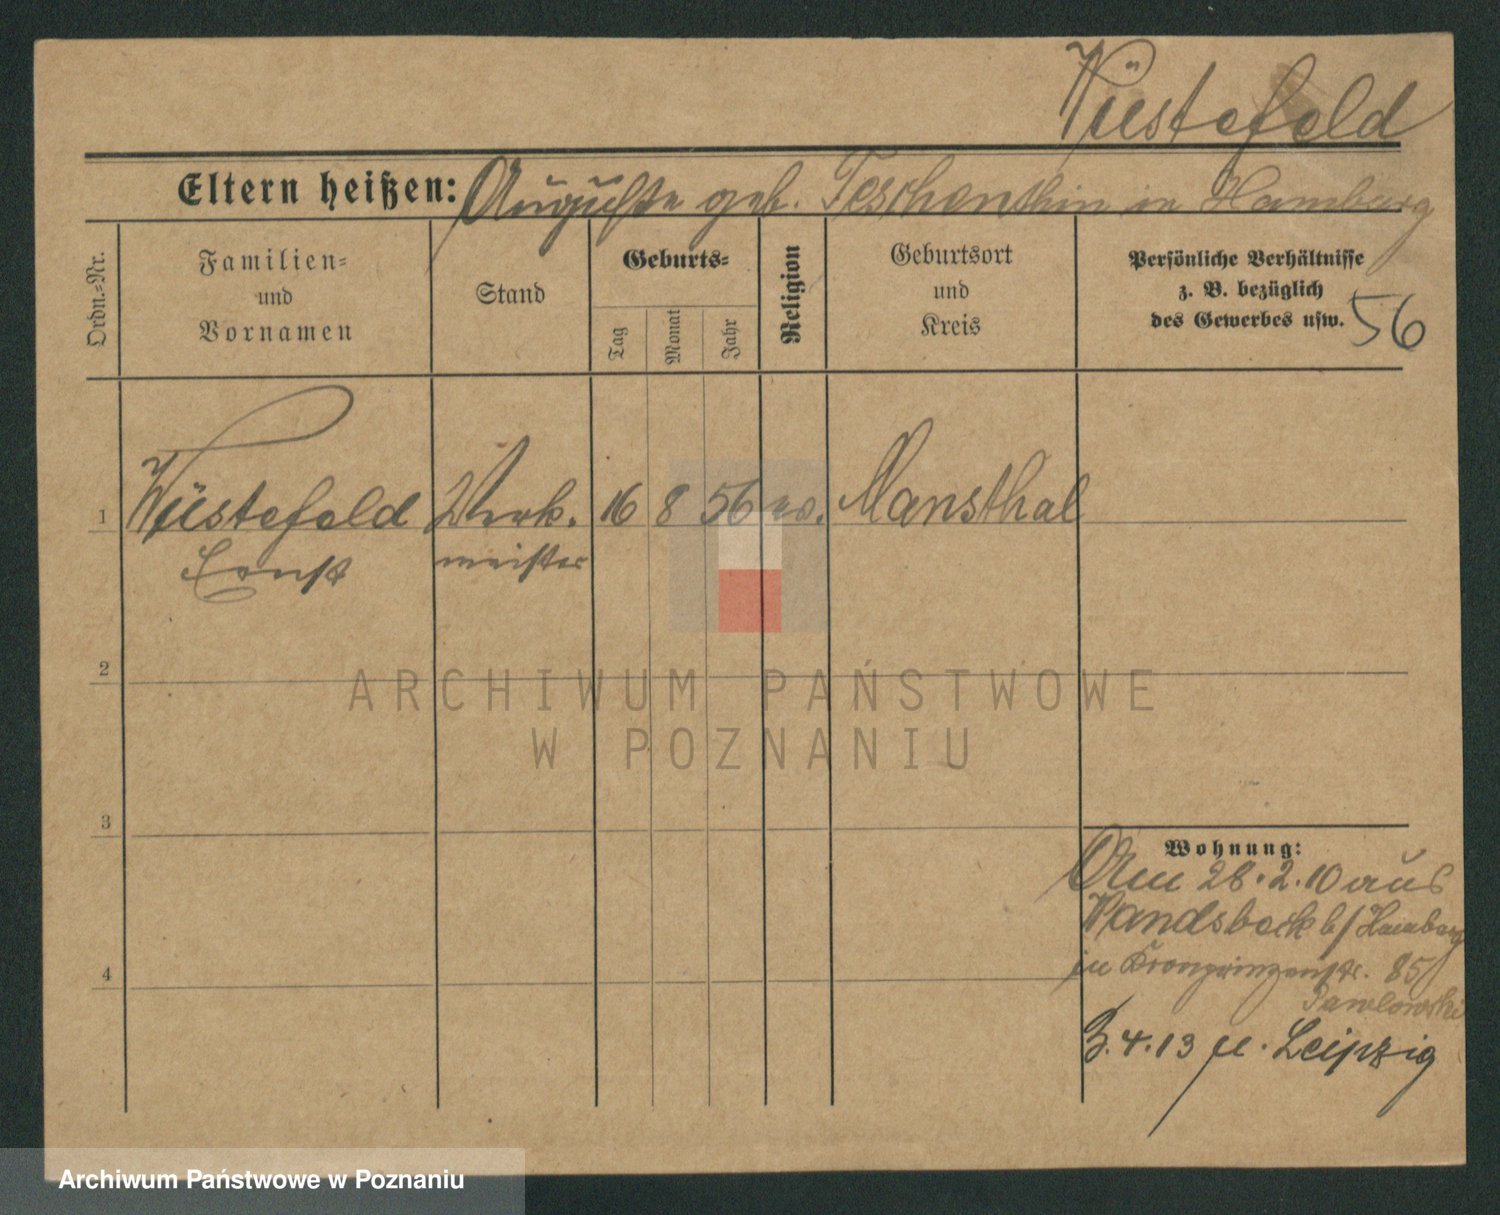 Wüstefeld
Eltern heißen: Auguste geb. in Hamburg
Ordn.-Nr.
Familien-
und
Vornamen
Stand
Geburts-
Tag
Monat
Jahr
Religion
Geburtsort
und
Kreis
Persönliche Verhältnisse
z. B. bezüglich
des Gewerbes usw.
56
1 Wüstefeld Werk. 16 8 56 ev. Mansthal
Ernst meister
2
3
4
Wohnung:
Am 28.2.10 aus
Wandsbeck b/Hamburg
in Kronprinzenstr. 85
Pawlowski
3.4.13 n. Leipzig
ARCHIWUM PAŃSTWOWE
W POZNANIU
Archiwum Państwowe w Poznaniu